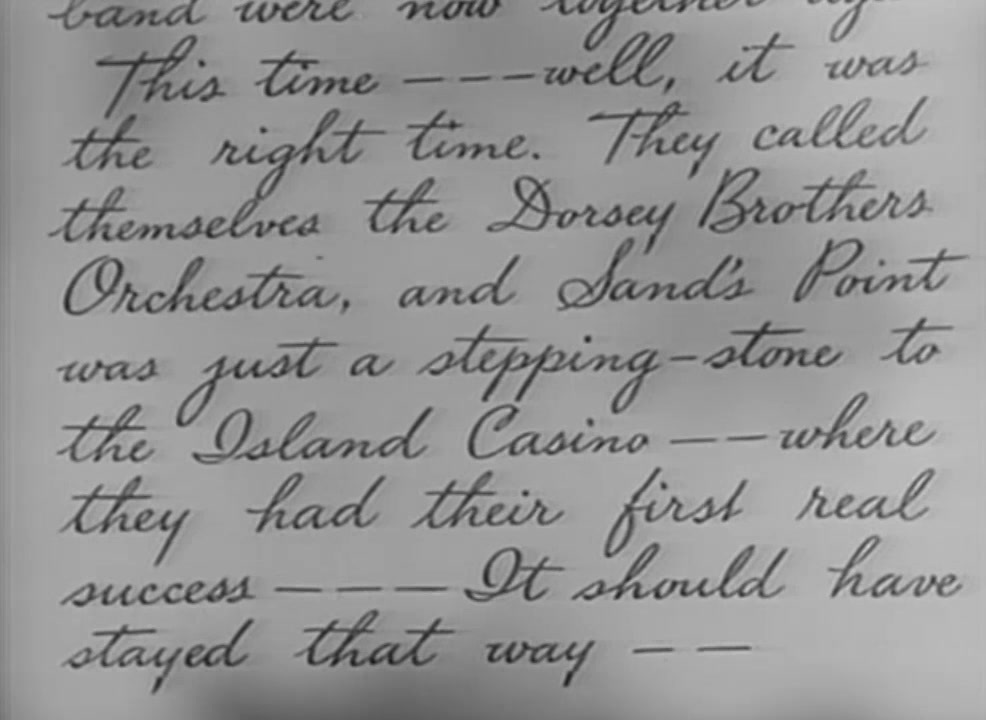 band were now together
This time ---well, it was
the right time. They called
themselves the Dorsey Brothers
Orchestra, and Sand's Point
was just a stepping-stone to
the Island Casino --where
they had their first real
success --- It should have
stayed that way --